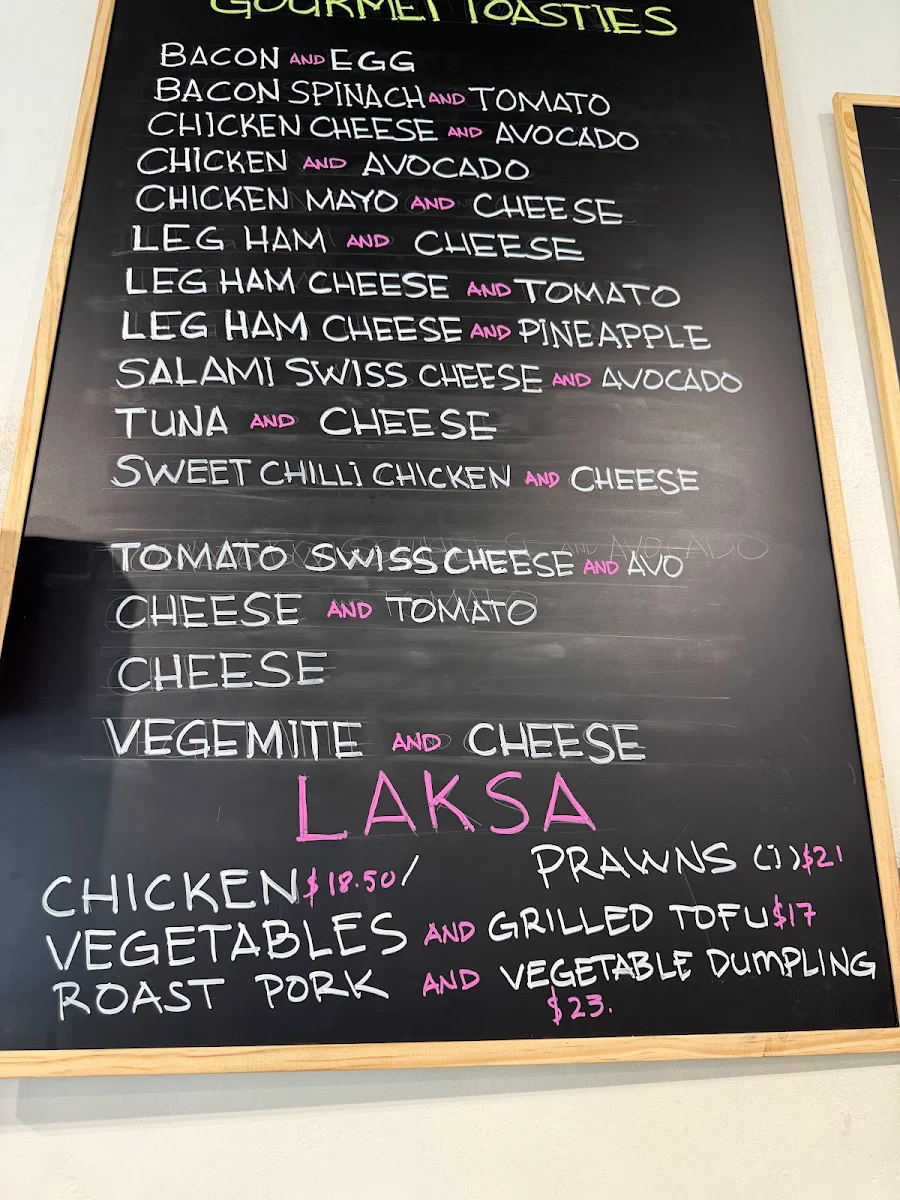 GOURMET TOASTIES
BACON AND EGG
BACON SPINACH AND TOMATO
CHICKEN CHEESE AND AVOCADO
CHICKEN AND AVOCADO
CHICKEN MAYO AND CHEESE
LEG HAM AND CHEESE
LEG HAM CHEESE AND TOMATO
LEG HAM CHEESE AND PINEAPPLE
SALAMI SWISS CHEESE AND AVOCADO
TUNA AND CHEESE
SWEET CHILLi CHICKEN AND CHEESE
TOMATO SWISS CHEESE AND AVO
CHEESE AND TOMATO
CHEESE
VEGEMITE AND CHEESE
LAKSA
CHICKEN $18.50/ PRAWNS (i) $21
VEGETABLES AND GRILLED TOFU $17
ROAST PORK AND VEGETABLE DUMPLING
$23.